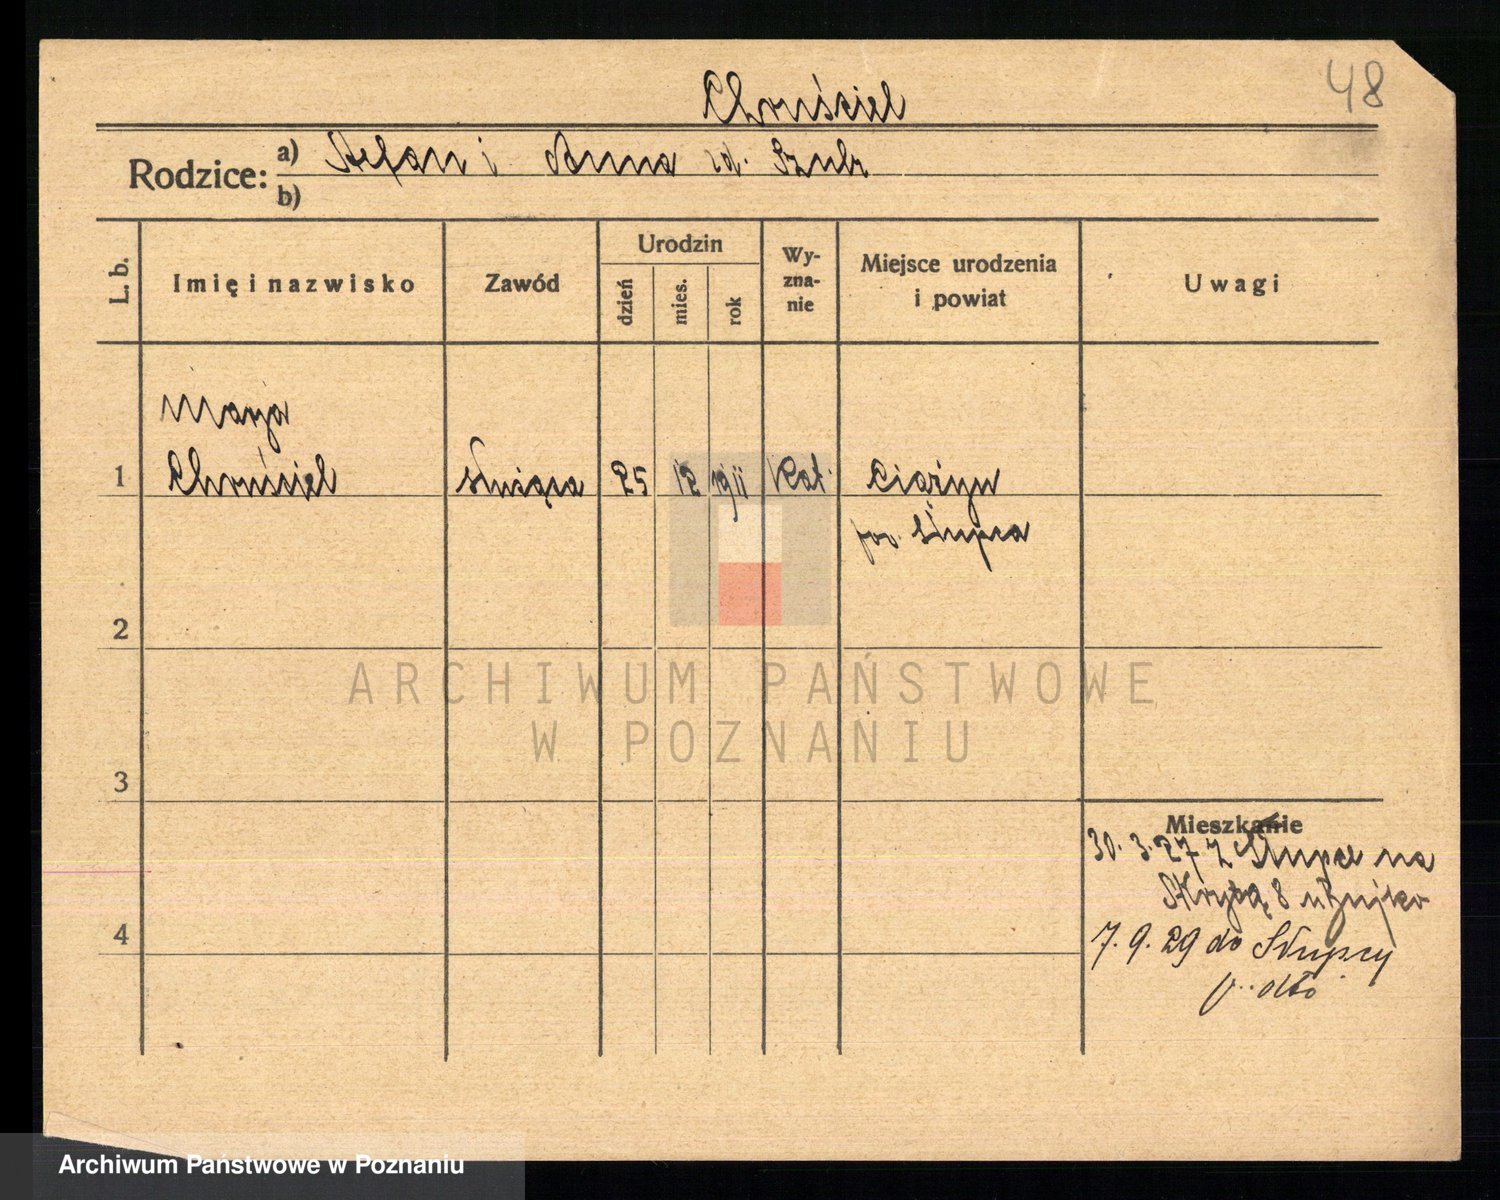 48
Chruściel
Rodzice: a) Stefan i Anna zd. Szulz
b)
L. b.
Imię i nazwisko
Zawód
Urodzin
dzień
mies.
rok
Wy-
zna-
nie
Miejsce urodzenia
i powiat
Uwagi
Marja
1 Chruściel służąca 25 12 1911 kat. Ciążyn
pow. Słupca
2
3
4
Mieszkanie
30. 3. 27 z Słupce na
8
7. 9. 29 do Słupcy
ARCHIWUM PAŃSTWOWE
W POZNANIU
Archiwum Państwowe w Poznaniu